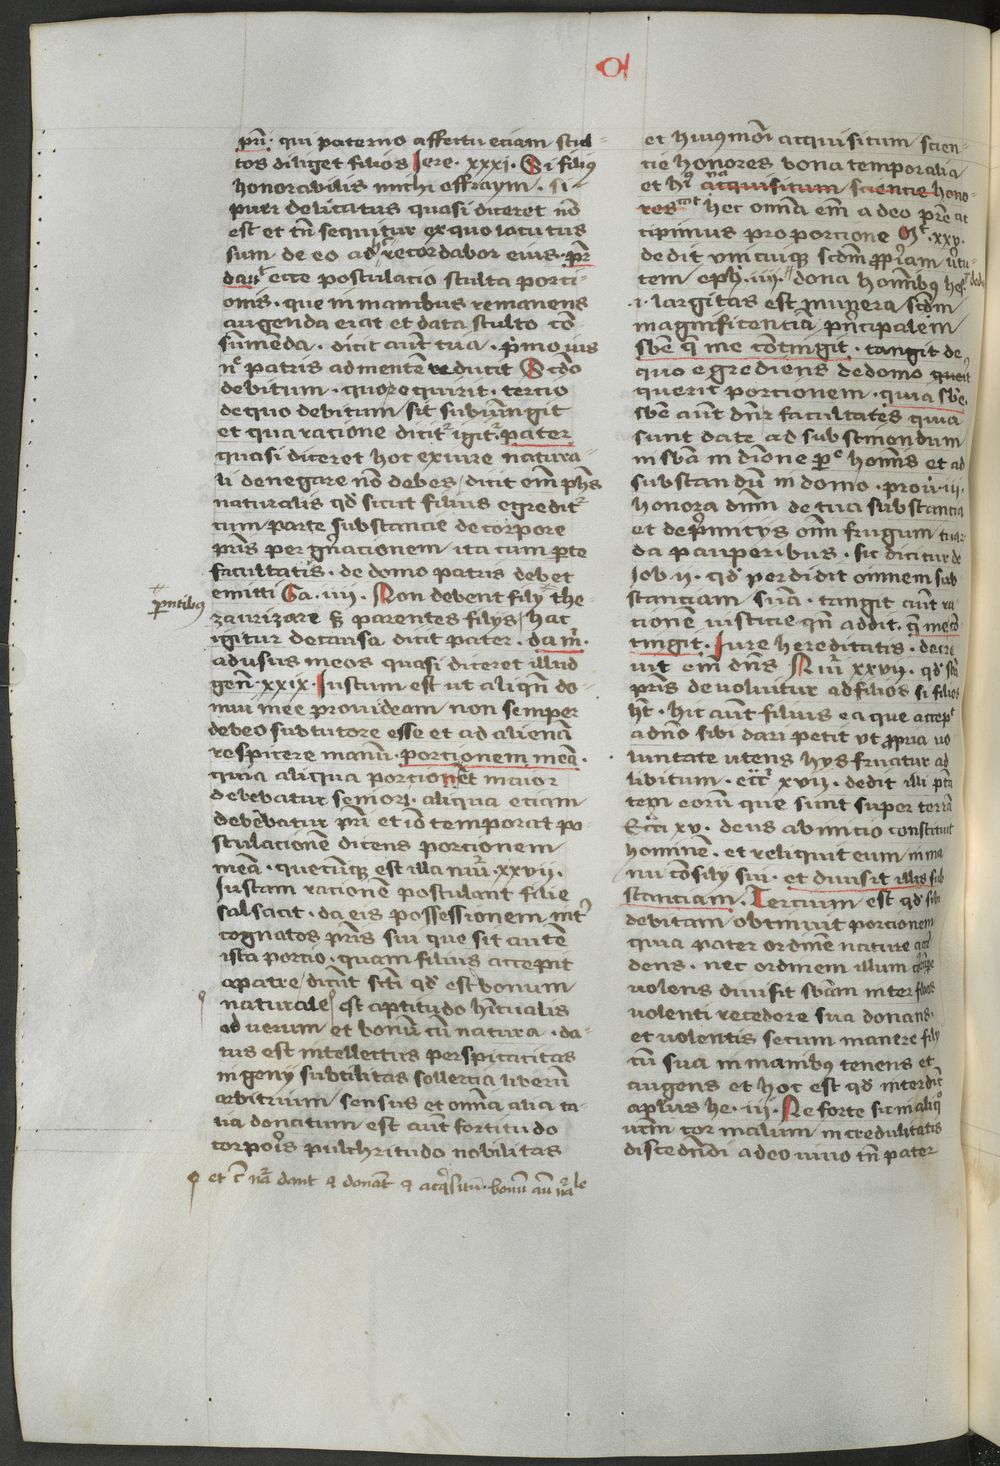 pri̅. qui paterno affectu eciam stul-
tos diliget filios Iere. xxxi. Si filiꝰ
honorabilis michi effraym. si
puer delicatus quasi diceret no̅
est et tn̅ sequitur ex quo locutus
sum de eo adhͨ recordabor eius. pr̅
da m ecce postulacio stulta porci-
onis. que in manibus remanens
augenda erat et data stulto co̅
sume̅da. dicit aut̅ tria. primo ius
patris ad mentem reducit Scd̅o
debitum. quo requirit. tercio
de quo debitum sit subiu̅ngit
et qua ratione dicit igit. pater
quasi diceret hoc ex iure natura-
li denegare no̅ debes / dicit em̅ ph̅s
naturalis qd̅ sicut filius egredit
cum parte substancie de corpore
pr̅is per gn̅acionem ita cum p̲te
facultatis. de domo patris debet
emitti Ca. iiii. Non debent filij the-
p̲entibus
zaurizare ß parentes filijs / hac
igitur de causa dicit pater. da m.
ad usus meos quasi diceret illud
gen̅. xxix. Iustum est ut aliqn̅ do-
mui mee prouideam non semper
debeo sub tutore esse et ad aliena̅
respicere manu̅. porcionem mea̅.
quia aliqua porcio maior
debebatur seniori. aliqua eciam
debebatur pri̅ et io̅ temperat po-
stulacione̅ dicens porcionem
mea̅. quecu̅qꝫ est illa nu̅. xxvii.
Iustam racione̅ postulant filie
salfaat. da eis possessionem int
cognatos pr̅is sui que sit aute̅
ista porcio. quam filius accepit
a patre / dicu̅t sc̅i qd̅ est bonum
naturale / est aptitudo habitualis
ad uerum et bonu̅ cu̅ natura. da-
tus est intellectus perspicacitas
ingenij subtilitas sollercia liberu̅
arbitrium sensus et omn̅ia alia ta-
lia donatum est aut̅ fortitudo
corporis pulchritudo nobilitas
et e̅ nr̅a dant̅ et donat̅ et acq̅situ̅. bonu̅ aut̅ nr̅ale
a
et huiusmo̅i acquisitum scien-
cie honores bona temporalia
et hi acquisitum sciencie hono-
res hec omn̅ia em̅ a deo pr̅e ac
cipimus pro porcione Mͭ. xxv.
dedit vnicuiqꝫ scd̅m ꝓpriam uirtu
tem eph̅. iiii. dona homi̅bꝫ
.i. largitas est munera scd̅m
magnificencia̅ pri̅ncipalem
sbe̅ q̅ me co̅tingit. tangit de
quo egrediens de domo querit
querit porcionem. quia sbe̅.
sbe̅ aut̅ dn̅r facultates quia
sunt date ad substinendum
in sb̅a in di̅one homi̅s et ad
substandu̅ in domo. prou̅. iii.
honora dn̅m de tua substancia
et de primicijs om̅i frugum tuar
da pauperibus. sic dicitur de
Iob. ii. qd̅ perdidit omnem sub
stanciam sua̅. tangit aut̅ ra
cione̅ iusticie qn̅ addit. q̅ me co̅
tingit. Iure hereditatis. decre
uit em̅ dn̅s Nu̅ xxvii. qd̅ sb̅a
pr̅is deuoluitur ad filios si filios
ht̅. hic aut̅ filius ea que accepit
a dn̅o sibi dari petit ut ꝓpria uo
luntate utens hijs fruatur ad
libitum. ecc̅i xvii. dedit illi p̲ta
tem eoru̅ que sunt super terra̅
Ecc̅i xv. deus ab inicio constituit
homine̅. et reliquit eum in ma
nu co̅silij sui. et diuisit illis sub
stanciam. Tercium est qd̅ sibi
debitam obtinuit porcionem
quia pater ordine̅ nature
dens. nec ordinem illum
uolens diuisit sb̅am inter filios
uolenti recedere sua donans.
et uolentis secum manere filij
cu̅ sua in manibꝫ tenens et
augens et hoc est qd̅ interdicit
aplus he. iii. Ne forte sit in aliqͦ
urm̅ cor malum incredulitatis
discede̅di a deo uiuo tn̅ pater